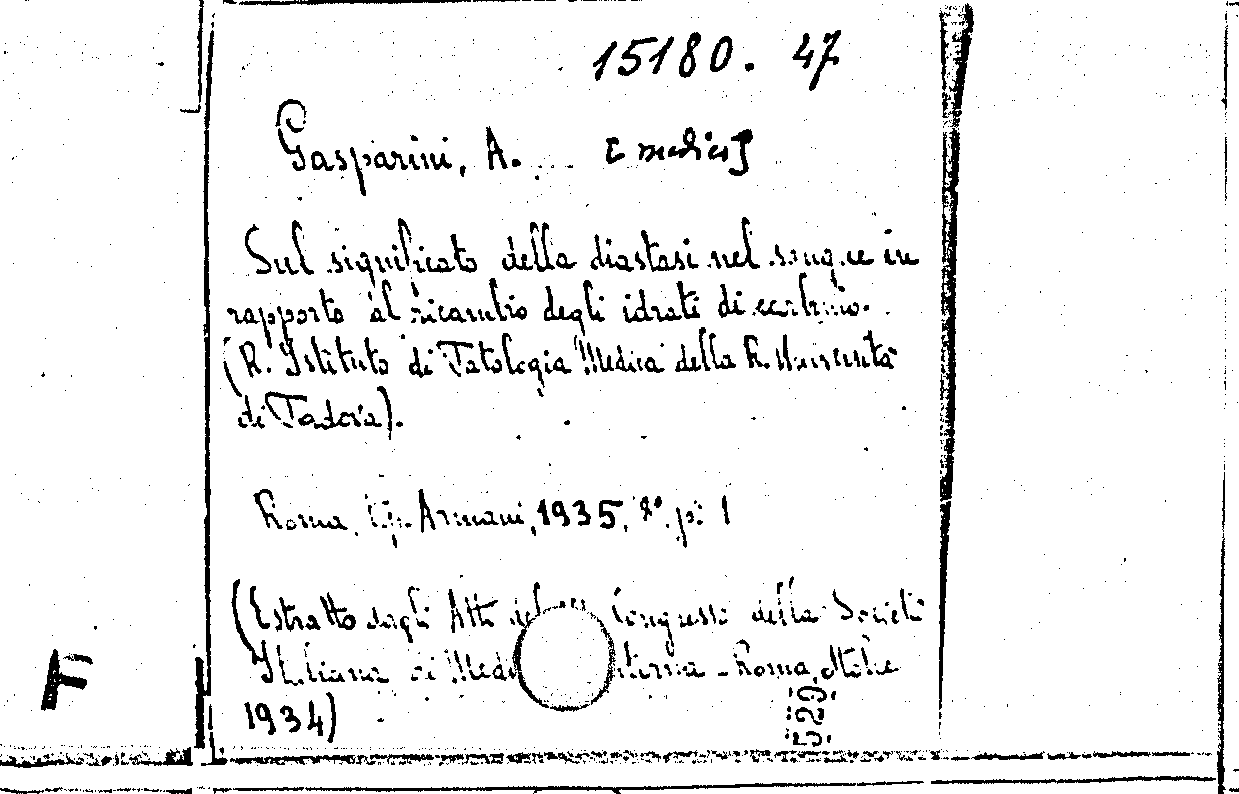 15180. 47
Gasparini, A. [medico]
Sul significato della diastasi nel sangue in
rapporto al ricambio degli idrati di carbonio.
(R. Istituto di Patologia Medica della R. Università
di Padova).
Roma, tip. Armani, 1935, 8°, p. 1
(Estratto dagli Atti del Congresso della Società
Italiana di Medi terna - Roma,
1934)
F
529